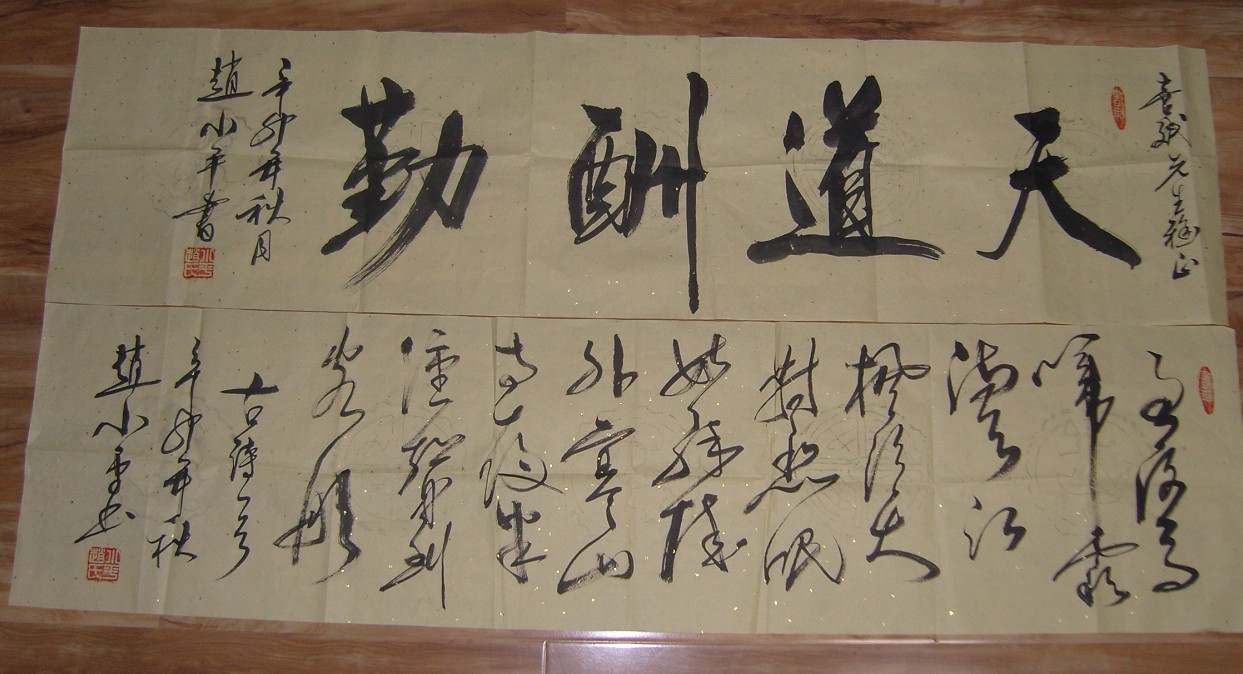 先生雅正
天道酬勤
辛卯年秋月
趙小平書
月落烏
啼霜
滿天江
楓漁火
對愁眠
姑蘇城
外寒山
寺夜半
鐘聲到
客船
古詩一首
辛卯年秋
趙小平书